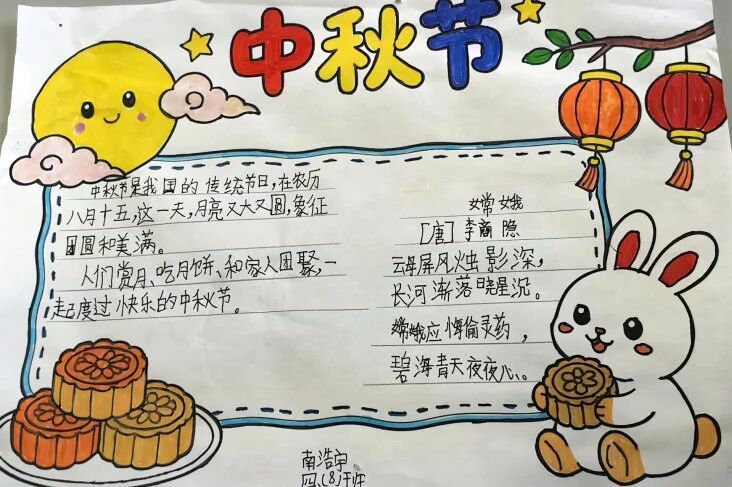 中秋节
中秋节是我国的传统节日,在农历
八月十五,这一天,月亮又大又圆,象征
团圆和美满。
人们赏月、吃月饼、和家人团聚,一
起度过快乐的中秋节。
嫦娥
[唐]李商隐
云母屏风烛影深,
长河渐落晓星沉。
嫦娥应悔偷灵药,
碧海青天夜夜心。
南浩宇
四(8)班